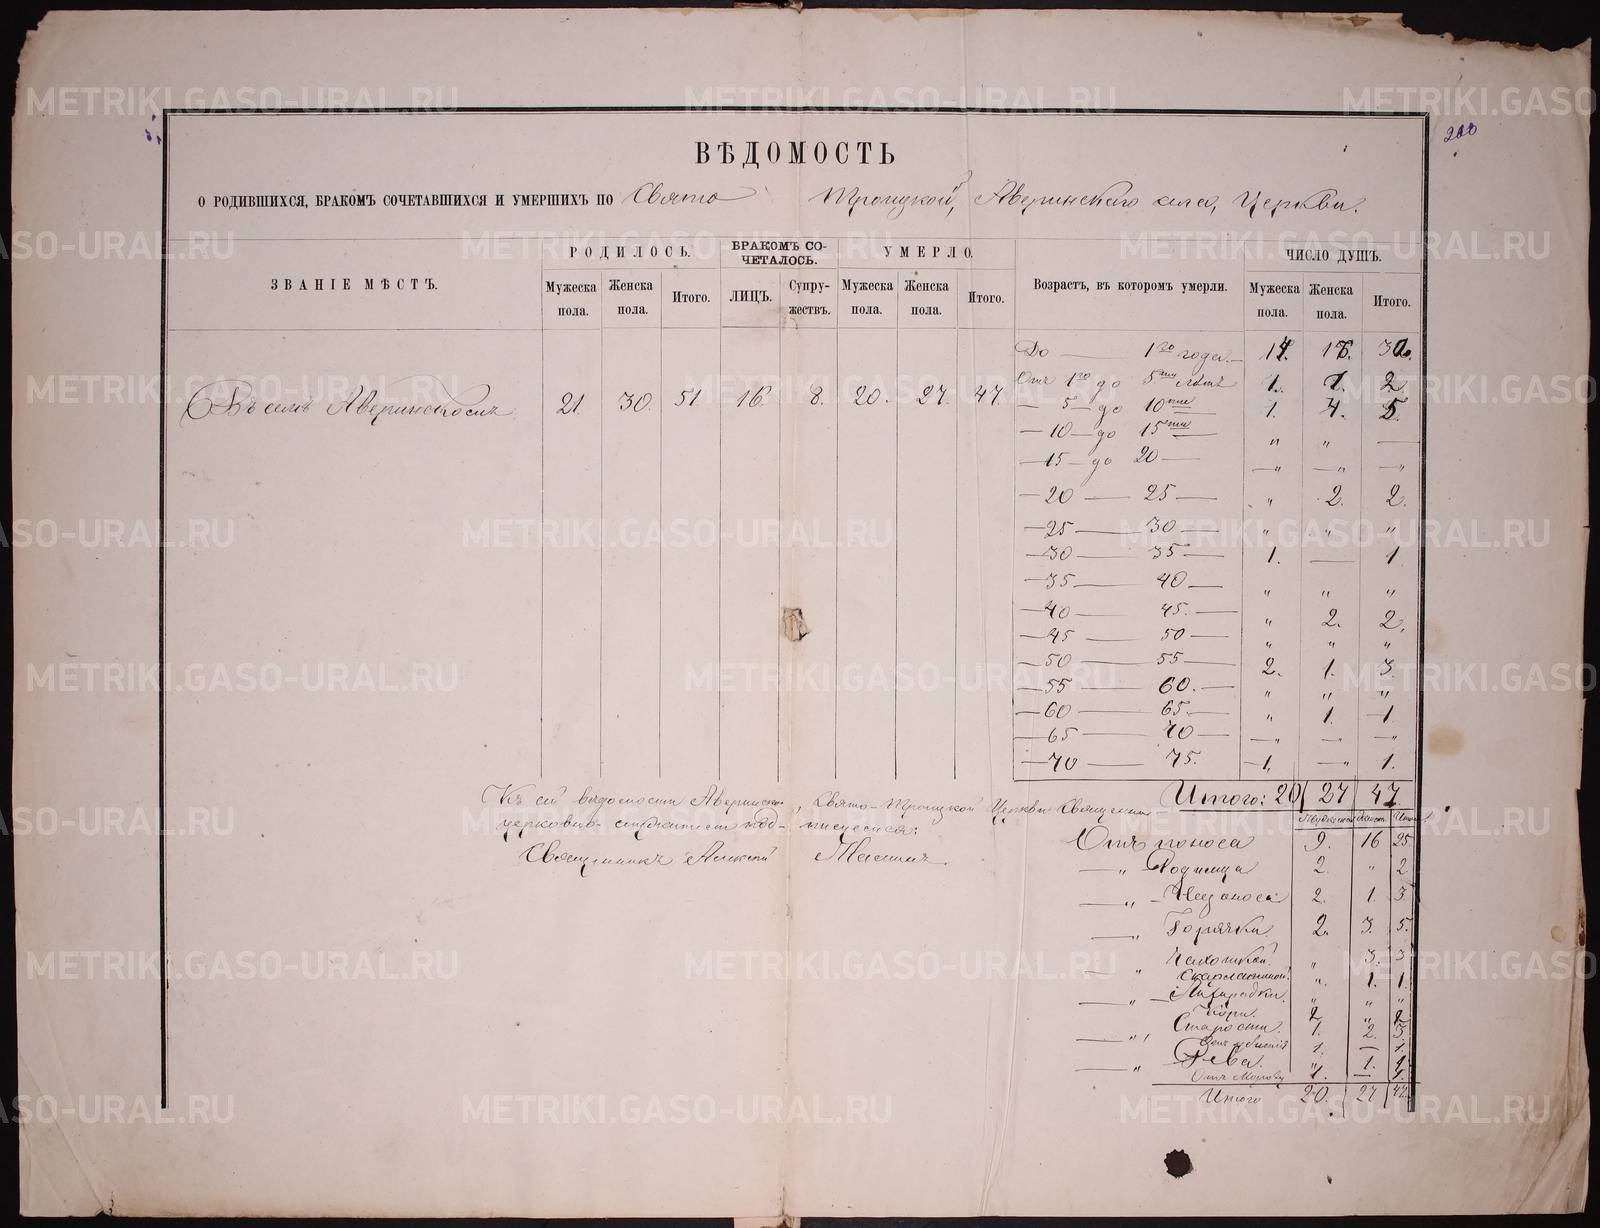 METRIKI.GASO-URAL.RU
200
ВѢДОМОСТЬ
О РОДИВШИХСЯ, БРАКОМЪ СОЧЕТАВШИХСЯ И УМЕРШИХЪ ПО Свято Троицкой, Аверинскаго села, Церкви.
ЗВАНІЕ МѢСТЪ. РОДИЛОСЬ. БРАКОМЪ СОЧЕТАЛОСЬ. УМЕРЛО. Возрастъ, въ которомъ умерли. ЧИСЛО ДУШЪ.
Мужеска пола. Женска пола. Итого. ЛИЦЪ. Супружествъ. Мужеска пола. Женска пола. Итого. Мужеска пола. Женска пола. Итого.
До — 1го года. 14. 16. 30.
Отъ 1го до 5ти лѣтъ 1. 1. 2.
Въ селѣ Аверинскомъ 21. 30. 51. 16. 8. 20. 27. 47.
— 5 — до 10ти 1. 4. 5.
— 10 — до 15ти — " " —
— 15 — до 20 — —"— —"— —"
— 20 — 25 — " 2. 2.
— 25 — 30 — " " "
— 30 — 35 — 1. — 1.
— 35 — 40 — " " "
— 40 — 45. — " 2. 2.
— 45 — 50 — " " "
— 50 — 55 — 2. 1. 3.
— 55 — 60. — " " "
— 60 — 65. — " 1. 1.
— 65 — 70 — —" —" —"
— 70 — 75. 1. —" 1.
Итого: 20 27 47
Къ сей вѣдомости Аверинской, Свято-Троицкой Церкви Священно
церковно-служители подписуемся:
Священникъ Алексій
Отъ поноса 9. 16 25.
—" Родимца 2. " 2
—" Недоноса 2. 1. 3.
—" Горячки 2. 3. 5.
" Чахоткой " 3. 3
Скарлатиной " 1. 1.
—" Лихорадки " " "
Кори. 2 " 2
—" Старости. 1. 2. 3.
1. — 1.
—" Рева. " 1. 1.
1. — 1.
Итого 20. 27 47